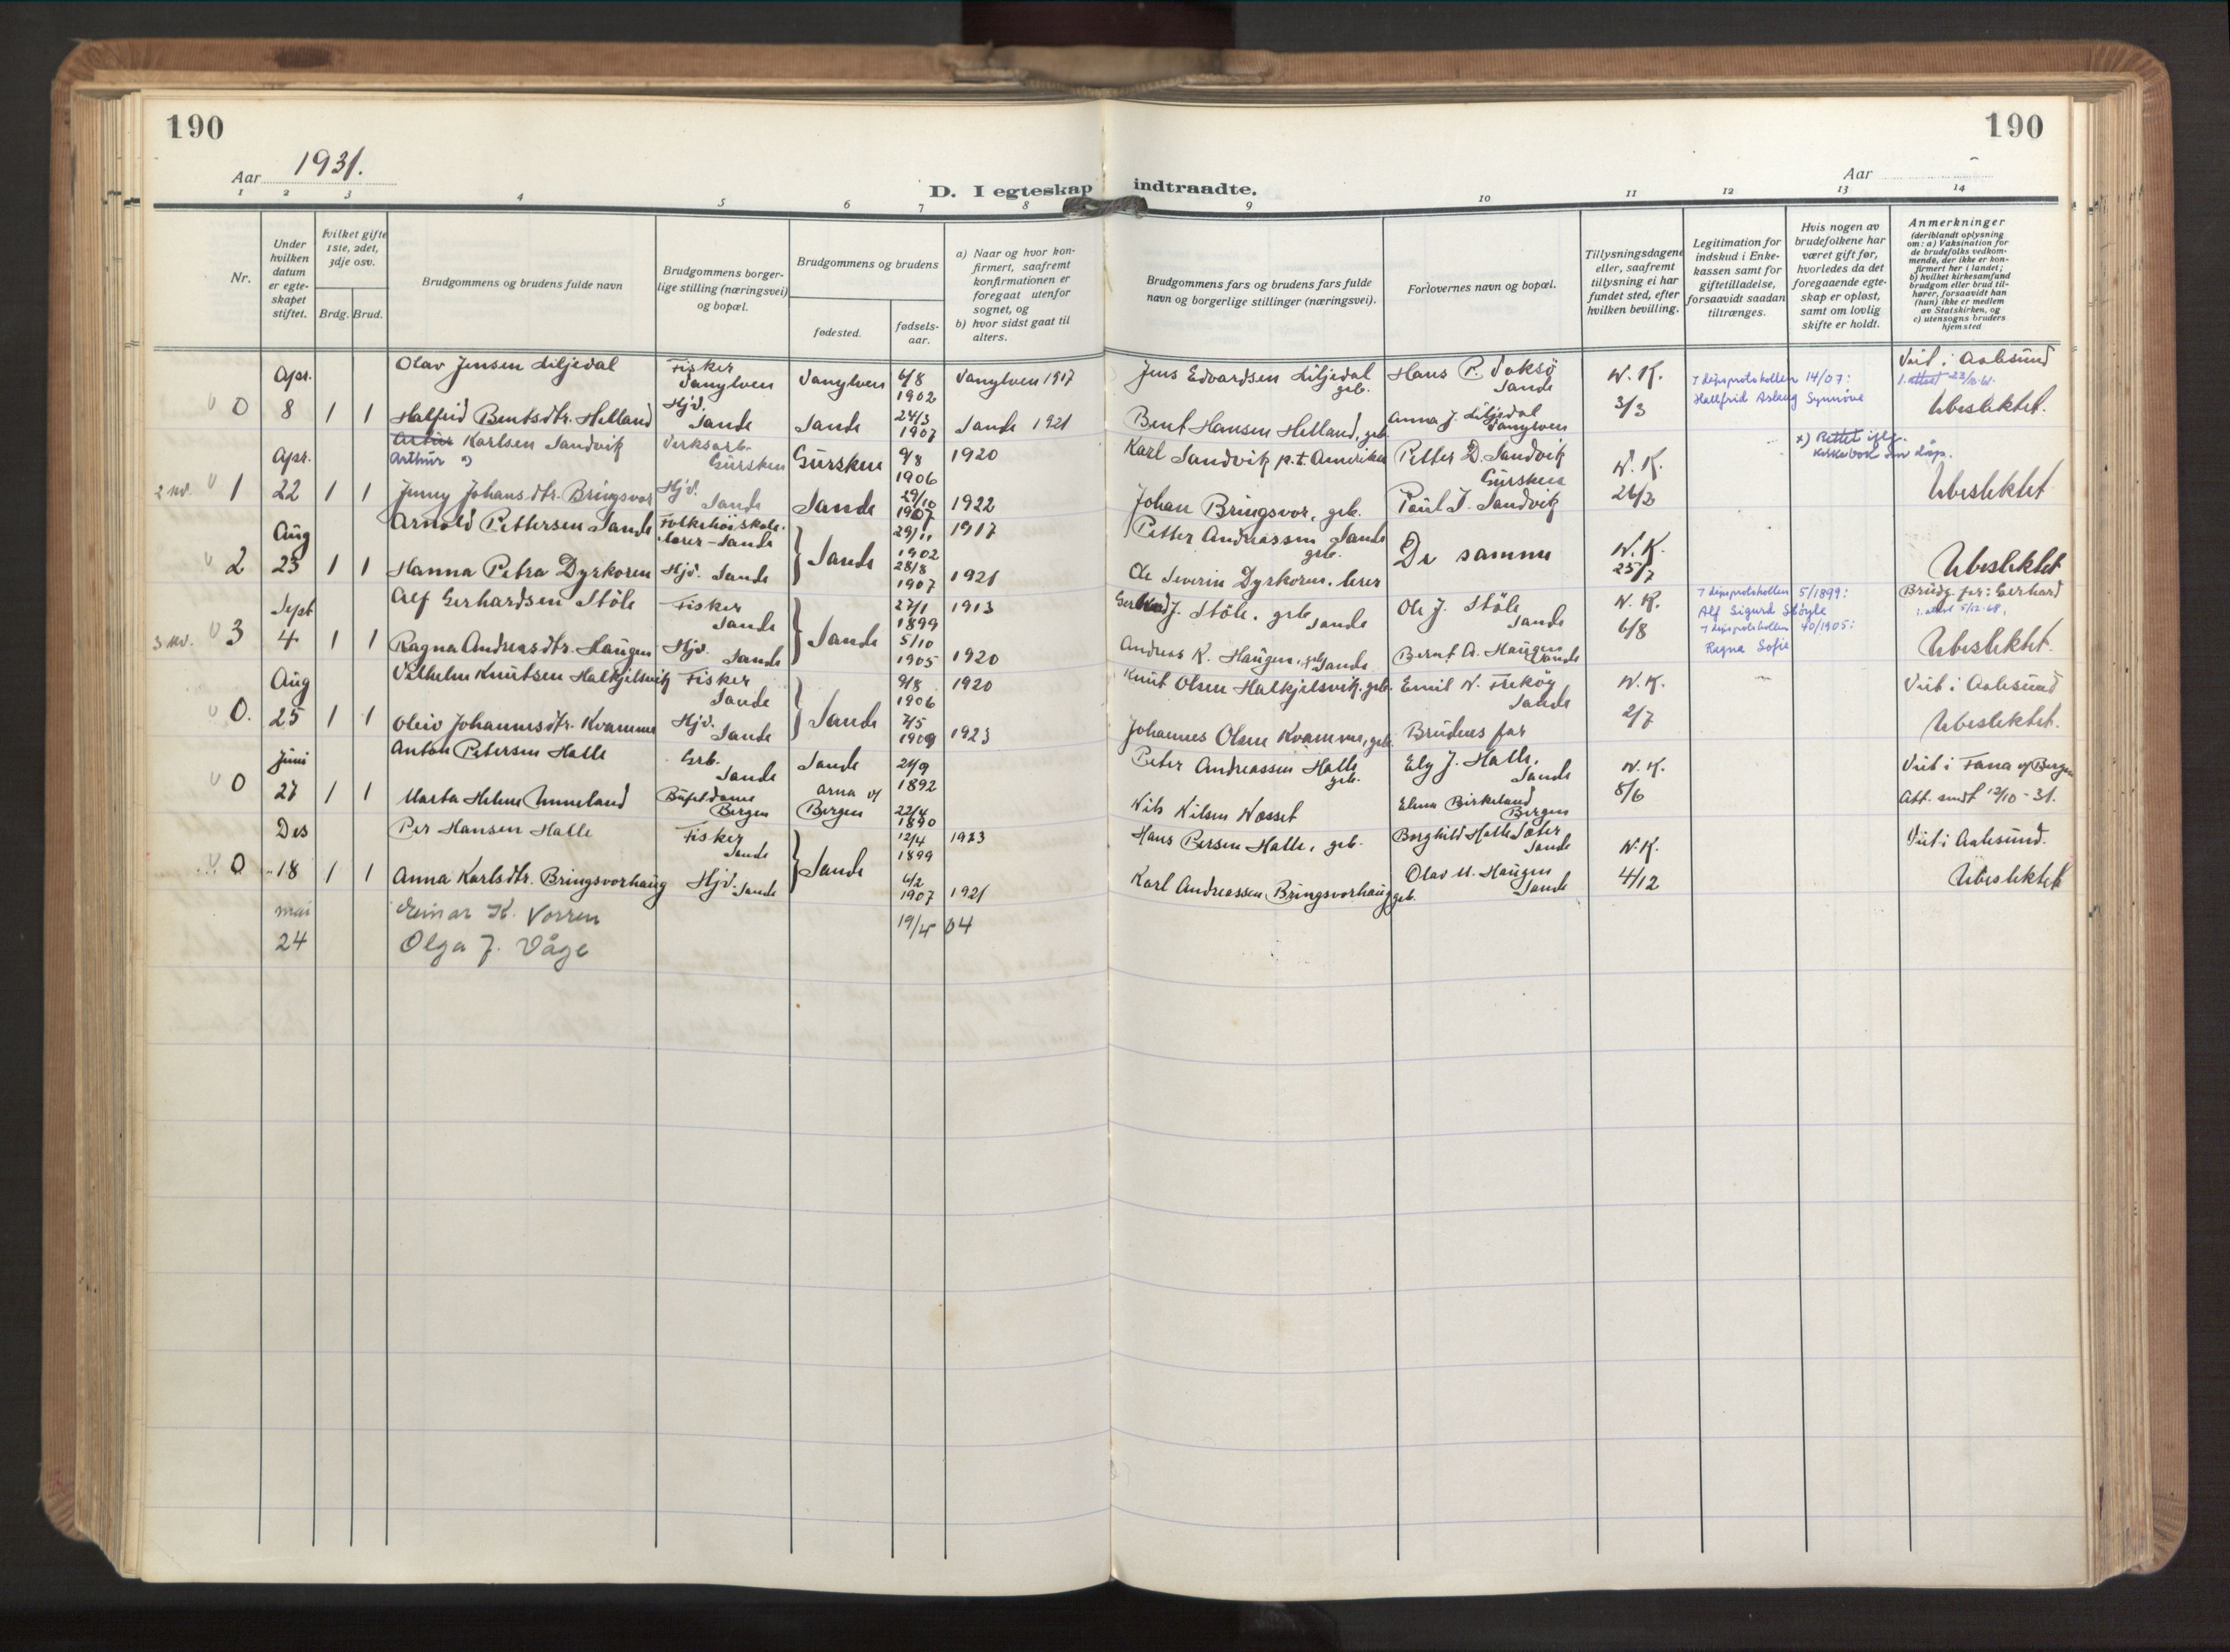 190
190
Aar 1931.
Aar
D. I egteskap indtraadte.
1 2 3 4 5 6 7 8 9 10 11 12 13 14
Nr.
Under hvilken datum er egte- skapet stiftet.
Hvilket gifte 1ste, 2det, 3dje osv.
Brdg. Brud.
Brudgommens og brudens fulde navn
Brudgommens borger- lige stilling (næringsvei) og bopæl.
Brudgommens og brudens
fødested.
fødsels- aar.
a) Naar og hvor kon- firmert, saafremt konfirmationen er foregaat utenfor sognet, og
b) hvor sidst gaat til alters.
Brudgommens fars og brudens fars fulde navn og borgerlige stillinger (næringsvei).
Forlovernes navn og bopæl.
Tillysningsdagene eller, saafremt tillysning ei har fundet sted, efter hvilken bevilling.
Legitimation for indskud i Enke- kassen samt for giftetilladelse, forsaavidt saadan tiltrænges.
Hvis nogen av brudefolkene har været gift før, hvorledes da det foregaaende egte- skap er opløst, samt om lovlig skifte er holdt.
Anmerkninger
(deriblandt oplysning om: a) Vaksination for de brudefolks vedkom- mende, der ikke er kon- firmert her i landet; b) hvilket kirkesamfund brudgom eller brud til- hører, forsaavidt han (hun) ikke er medlem av Statskirken, og c) utensogns bruders hjemsted
Apr. Olav Jensen Liljedal Fisker Vanylven Vanylven 6/8 1902 Vanylven 1917 Jens Edvardsen Liljedal grb. Hans P. Voksö Sande N. K. 7 dåpsprotokollen 14/07: Viet i Aalesund
0 8 1 1 Halfrid Bentsdtr. Helland Hjd. Sande Sande 24/3 1907 Sande 1921 Bent Hansen Helland, grb. Anna J. Liljedal Vanylven 3/3 Hallfrid Aslaug Synnöve Ubeslektet.
Apr. Artur Karlsen Sandvik Verksarb. Gursken Gursken 9/8 1906 1920 Karl Sandvik p.t. Amerika Petter D. Sandvik Gursken N. K. x) Rettet iflg. kirkebok
Arthur x)
2 kv. 1 22 1 1 Jenny Johansdtr. Bringsvor Hjd. Sande Sande 29/10 1907 1922 Johan Bringsvor, grb. Paul J. Sandvik 26/3 Ubeslektet
Aug Arnold Pettersen Sande Folkehöiskole- lærer - Sande Sande 29/11 1902 1917 Petter Andreassen Sande grb. De samme N. K.
2 23 1 1 Hanna Petra Dyrkoren Hjd. Sande 28/8 1907 1921 Ole Severin Dyrkoren, lærer 25/7 Ubeslektet
Sept Alf Gerhardsen Stöle Fisker Sande Sande 27/1 1899 1913 J. Stöle, grb. Sande Ole J. Stöle Sande N. K. 7 dåpsprotokollen 5/1899: Alf Sigurd Støyle Brudg. far: Gerhard
3 kv. 3 4 1 1 Ragna Andreasdtr. Haugen Hjd. Sande 5/10 1905 1920 Andreas K. Haugen, grb. Sande Bernt A. Haugen Sande 6/8 7 dåpsprotokollen 40/1905: Ragna Sofie Ubeslektet.
Aug Vilhelm Knutsen Halkjelsvik Fisker Sande Sande 9/8 1906 1920 Knut Olsen Halkjelsvik, grb. Emil N. Frököy Sande N. K. Viet i Aalesund
0. 25 1 1 Oleiv Johannesdtr. Kvamme Hjd. Sande 7/5 1909 1923 Johannes Olsen Kvamme, grb. Brudens far 2/7 Ubeslektet.
Juni Anton Petersen Halle Grb. Sande Sande 24/9 1892 Peter Andreassen Halle grb. Ely J. Halle, Sande N. K. Viet i Fana v/ Bergen
0 27 1 1 Marta Helene Unneland Büfetdame Bergen Arna v/ Bergen 22/4 1890 Nils Nilsen Nosset Elena Birkeland Bergen 8/6 Att. sendt 12/10-31.
Des Per Hansen Halle Fisker Sande Sande 12/4 1899 1923 Hans Persen Halle, grb. Borghild Halle Sæter Sande N. K. Viet i Aalesund.
0 18 1 1 Anna Karlsdtr. Bringsvorhaug Hjd. Sande 6/2 1907 1921 Karl Andreassen Bringsvorhaug grb. Olav M. Haugen Sande 4/12 Ubeslektet
mai Einar K. Vorren 19/4 04
24 Olga J. Våge